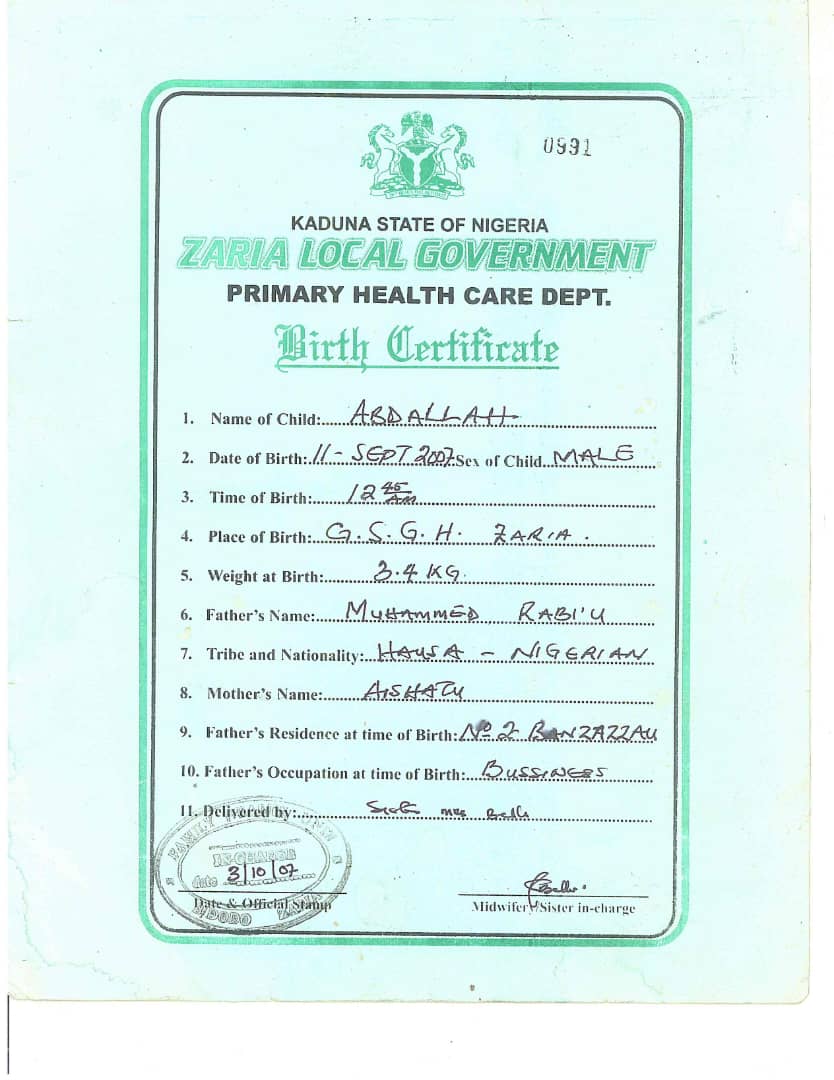 0991
KADUNA STATE OF NIGERIA
ZARIA LOCAL GOVERNMENT
PRIMARY HEALTH CARE DEPT.
Birth Certificate
1. Name of Child: ABDALLAH
2. Date of Birth: 11 - SEPT 2007 Sex of Child MALE
3. Time of Birth: 12 45 AM
4. Place of Birth: G. S. G. H. ZARIA.
5. Weight at Birth: 3.4 KG.
6. Father's Name: MUHAMMED RABI'U
7. Tribe and Nationality: HAUSA - NIGERIAN
8. Mother's Name: AISHATU
9. Father's Residence at time of Birth: Nº 2 BANZAZZAU
10. Father's Occupation at time of Birth: BUSSINESS
11. Delivered by:
FAMILY
IN-CHARGE
date 3/10/07
Date & Official Stamp
Midwifery/Sister in-charge